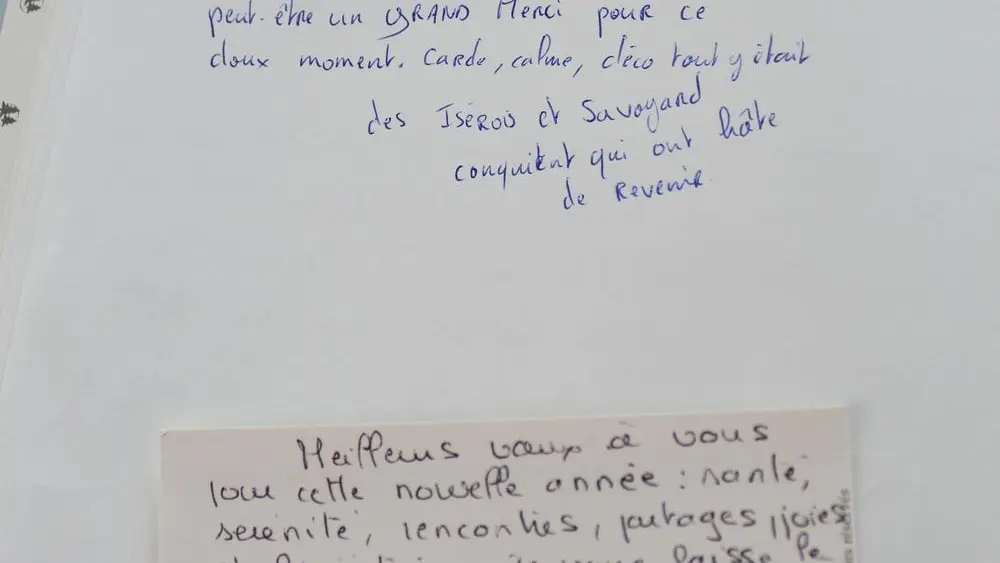 peut-être un GRAND Merci pour ce
doux moment. Carde, calme, déco tout y était
des Isérois et Savoyard
conquient qui ont hâte
de Revenir
Meilleurs vœux à vous
pour cette nouvelle année : santé,
sérénité, rencontres, partages, joies
laisse le